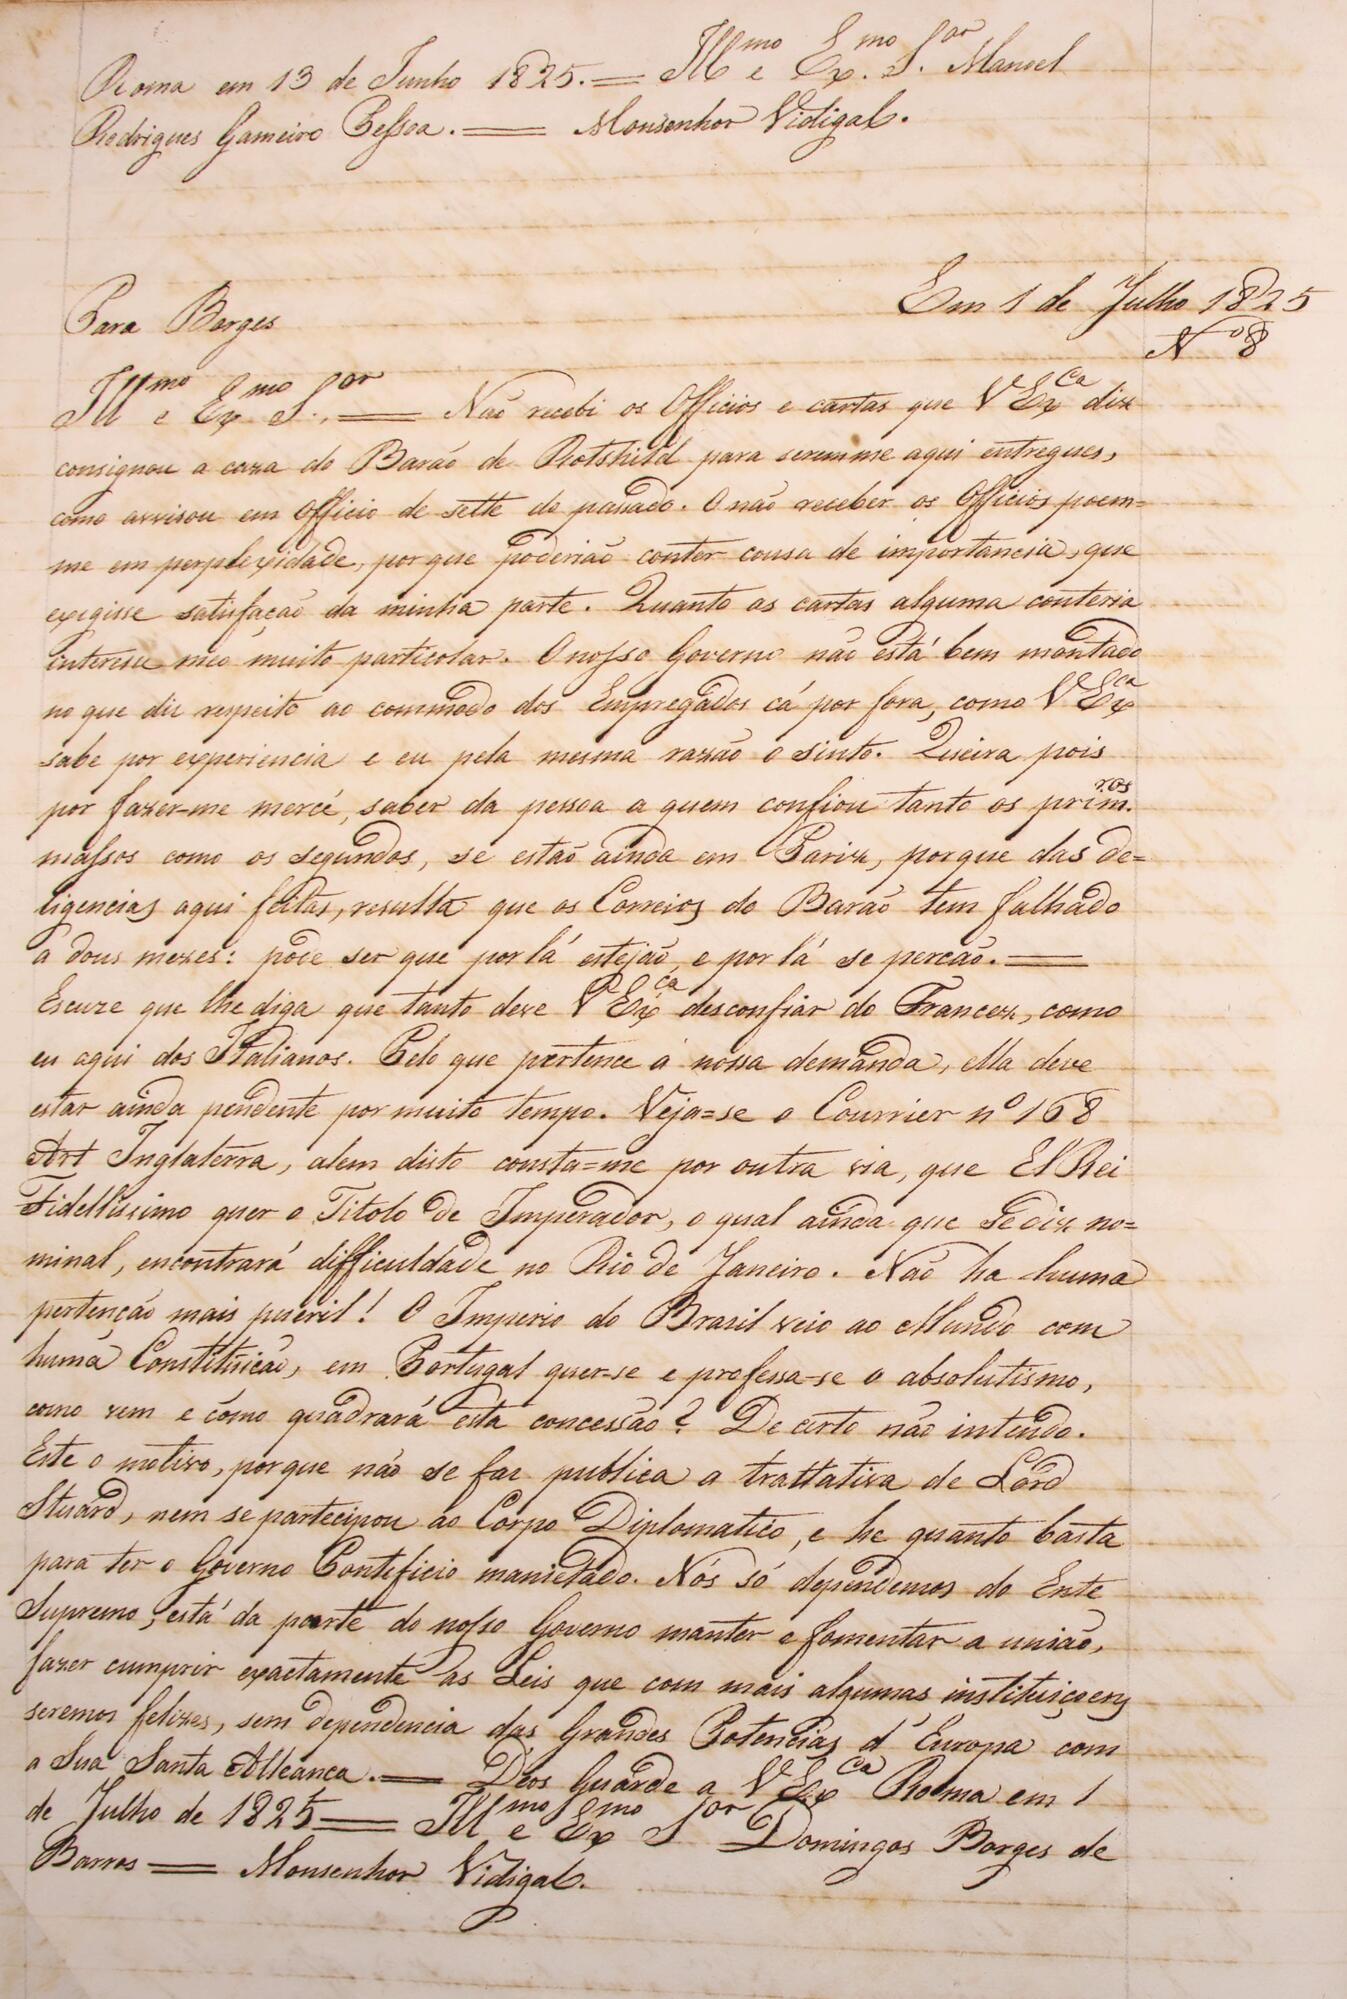 Roma em 13 de Junho 1825. == Ill.mo e Ex.mo S.or Manoel
Rodrigues Gameiro Pessoa. == Monsenhor Vidigal.
Em 1 de Julho 1825
Para Borges
Nº 8
Ill.mo e Ex.mo S.or == Não recebi os Officios e cartas que V Ex.ca diz
consignou a caza do Barão de Rotshild para seremme aqui entregues,
como avvisou em officio de sette do passado. O não receber os Officios poem=
me em perplexidade, por que poderião conter cousa de importancia, que
exigisse satisfação da minha parte. Quanto as cartas alguma conteria
interesse meo muito particolar. O nosso Governo não está bem montado
no que diz respeito ao commodo dos Empregados cá por fora, como V Ex.ca
sabe por experiencia e eu pela mesma razão o sinto. Queira pois
por fazer-me mercé, saber da pessoa a quem confiou tanto os prim.ros
massos como os segundos, se estão ainda em Pariz, porque das de=
ligencias aqui feitas, resulta que os Correios do Barão tem falhado
a dous mezes: pode ser que por lá estejão, e por lá se percão. ==
Escuze que lhe diga que tanto deve V Ex.ca desconfiar do Francez, como
eu aqui dos Italianos. Pelo que pertence á nossa demanda, ella deve
estar ainda pendente por muito tempo. Veja=se o Courrier nº 168
Art Inglaterra, alem disto consta=me por outra via, que El Rei
Fidellissimo quer o Titolo de Imperador, o qual ainda que se diz no=
minal, encontrará difficuldade no Rio de Janeiro. Não ha huma
pertenção mais pueril! O Imperio do Brazil veio ao Mundo com
huma Constituição, em Portugal quer-se e professa-se o absolutismo,
como vem e como quadrará esta concessão? De certo não intendo.
Este o motivo, porque não se faz publica a trattativa de Lord
Stuard, nem se partecipou ao Corpo Diplomatico, e he quanto basta
para ter o Governo Pontificio manietado. Nós só dependemos do Ente
Supremo, está da parte do nosso Governo manter e fomentar a união,
fazer cumprir exactamente as Leis que com mais algumas instituiçoens
seremos felizes, sem dependencia das Grandes Potencias d'Europa com
a Sua Santa Alleanca. == Deos Guarde a V Ex.ca Roma em 1
de Julho de 1825 == Ill.mo e Ex.mo S.or Domingos Borges de
Barros == Monsenhor Vidigal.